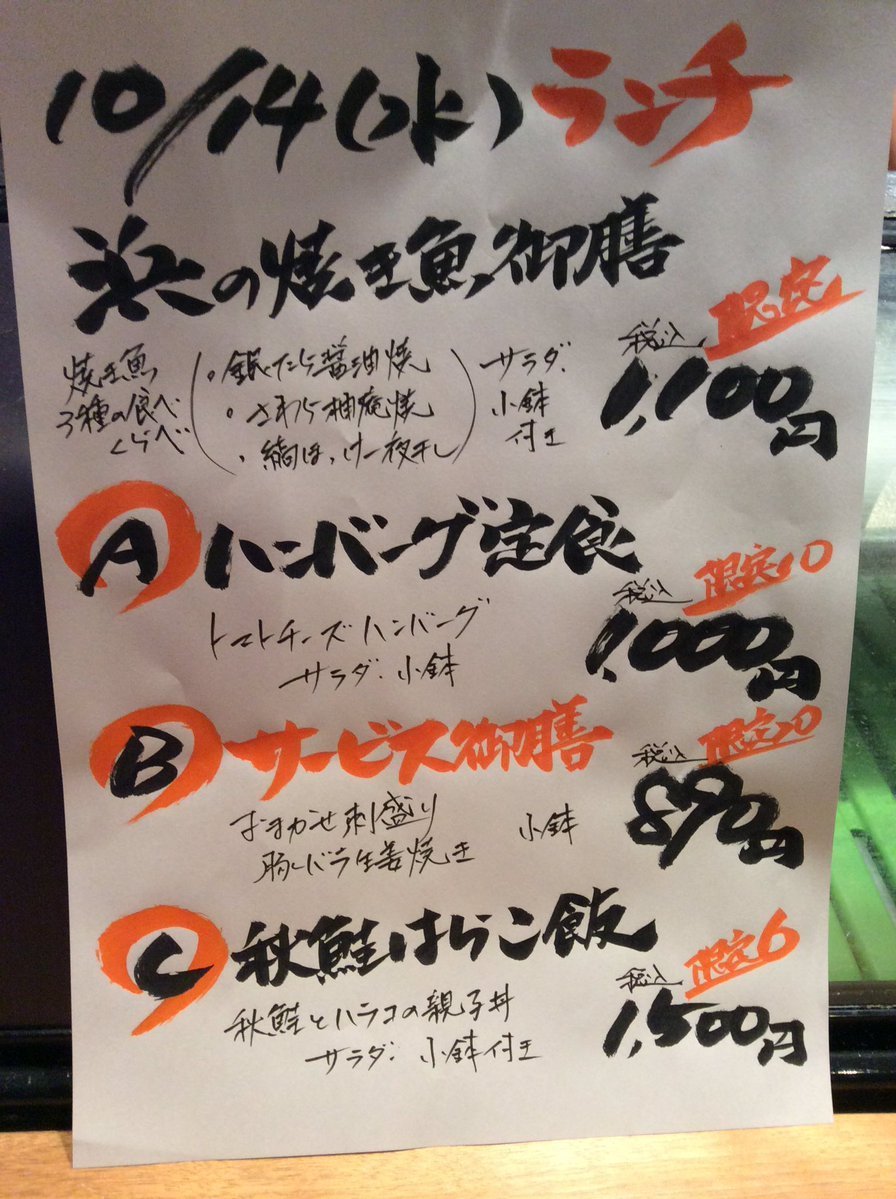 10/14(水)ランチ
浜の焼き魚御膳
限定
税込
1,100円
焼き魚
3種の食べ
くらべ
・銀だら醤油焼
・さわら柚庵焼
・縞ほっけ一夜干し
サラダ・
小鉢
付き
A ハンバーグ定食
限定10
税込
1,000円
トマトチーズハンバーグ
サラダ・小鉢
B サービス御膳
限定20
税込
890円
おまかせ刺盛り 小鉢
豚バラ生姜焼き
C 秋鮭はらこ飯
限定6
税込
1,500円
秋鮭とハラコの親子丼
サラダ・小鉢付き